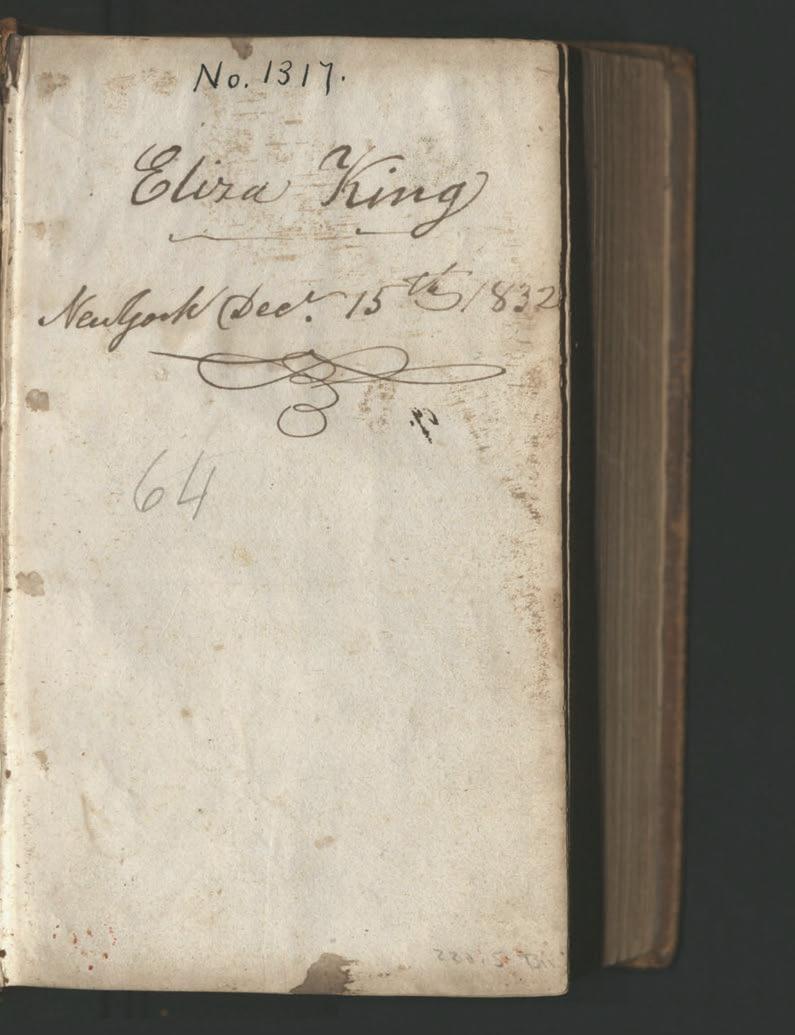 No. 1317.
Eliza King
New York Decr. 15th 1832
64